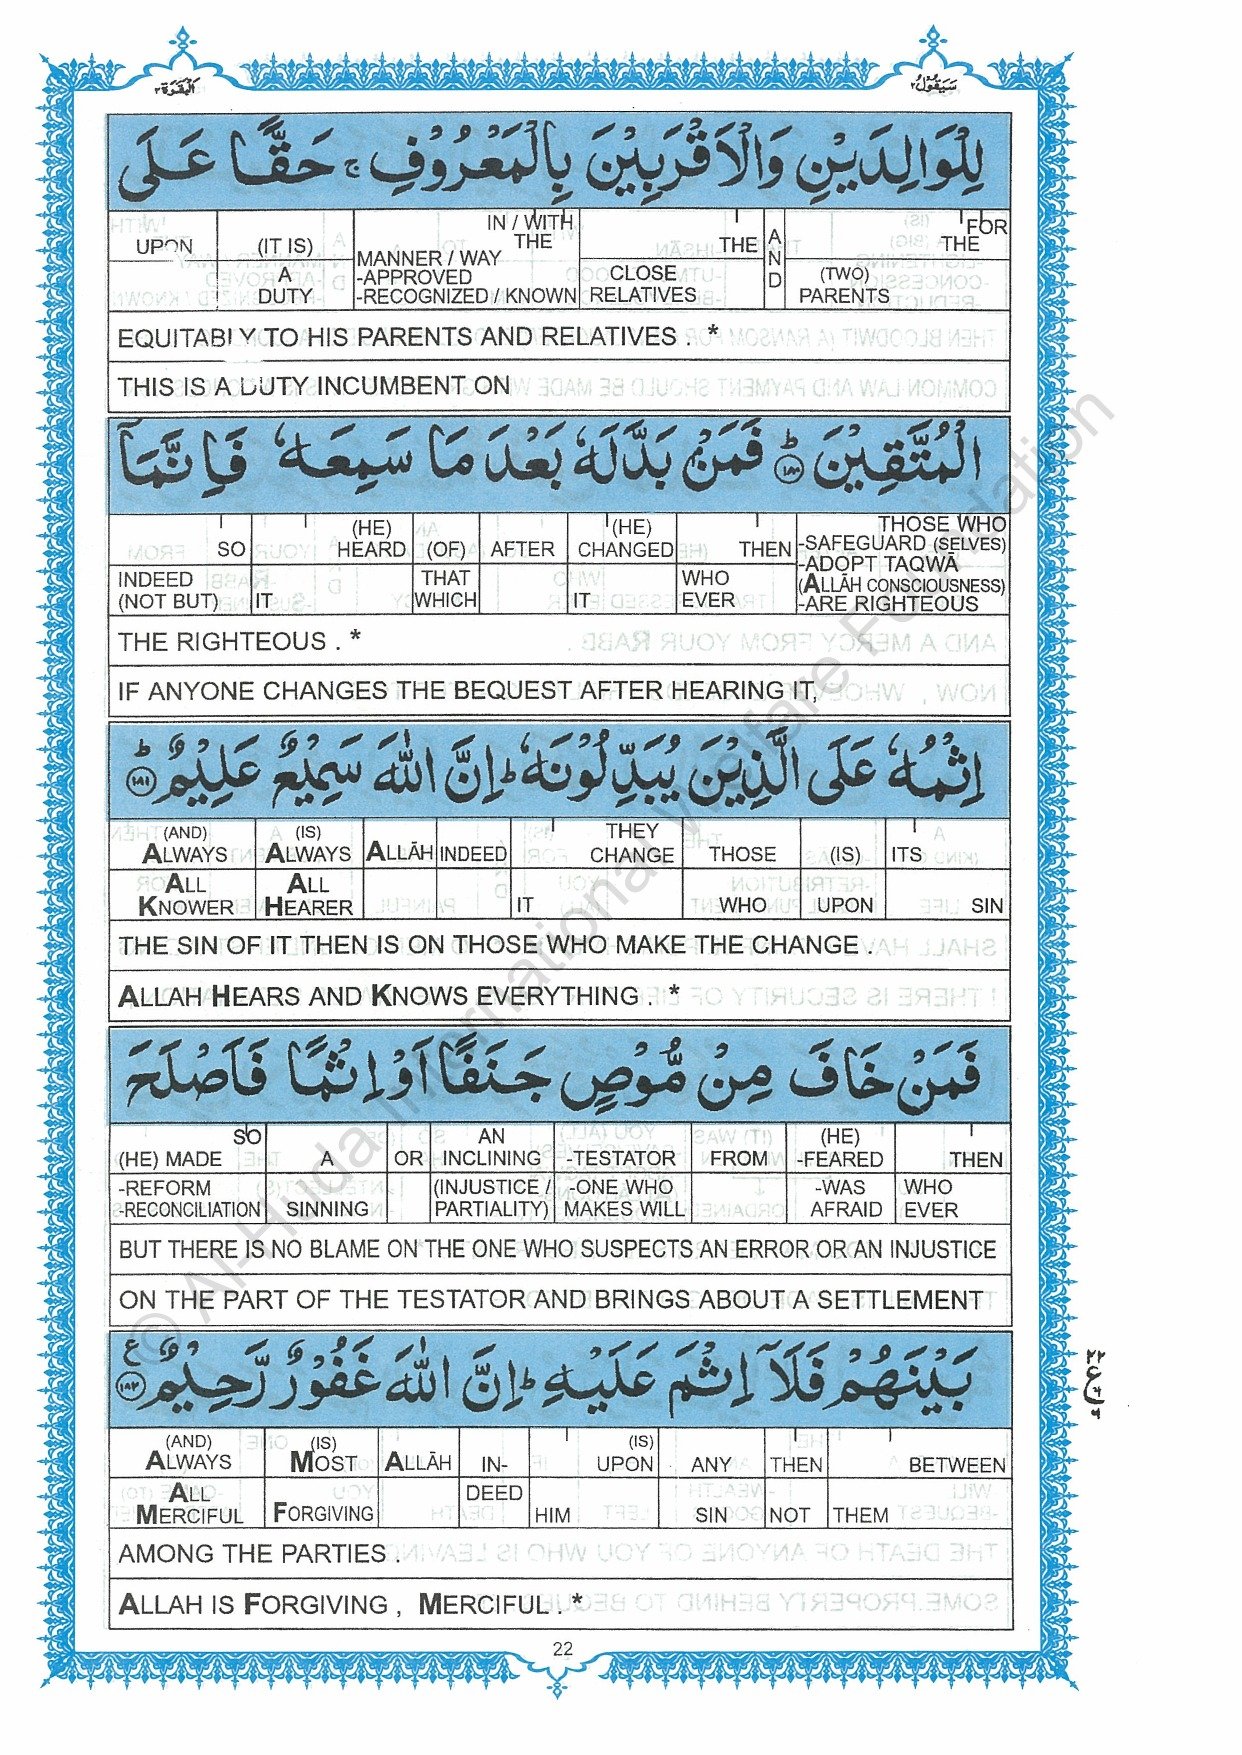 البقرة ٢
سيقول ٢
لِلْوَالِدَيْنِ وَالْاَقْرَبِيْنَ بِالْمَعْرُوْفِ ۚ حَقًّا عَلَى
UPON (IT IS) IN / WITH THE THE AND FOR THE
A DUTY MANNER / WAY -APPROVED -RECOGNIZED / KNOWN CLOSE RELATIVES (TWO) PARENTS
EQUITABLY TO HIS PARENTS AND RELATIVES . *
THIS IS A DUTY INCUMBENT ON
الْمُتَّقِيْنَ ؕ ﴿١٨٠﴾ فَمَنْۢ بَدَّلَهٗ بَعْدَ مَا سَمِعَهٗ فَاِنَّمَاۤ
SO (HE) HEARD (OF) AFTER (HE) CHANGED THEN THOSE WHO -SAFEGUARD (SELVES) -ADOPT TAQWĀ (ALLĀH CONSCIOUSNESS) -ARE RIGHTEOUS
INDEED (NOT BUT) IT THAT WHICH IT WHO EVER
THE RIGHTEOUS . *
IF ANYONE CHANGES THE BEQUEST AFTER HEARING IT,
اِثْمُهٗ عَلَى الَّذِيْنَ يُبَدِّلُوْنَهٗ ؕ اِنَّ اللّٰهَ سَمِيْعٌ عَلِيْمٌ ؕ ﴿١٨١﴾
(AND) ALWAYS (IS) ALWAYS ALLĀH INDEED THEY CHANGE THOSE (IS) ITS
ALL KNOWER ALL HEARER IT WHO UPON SIN
THE SIN OF IT THEN IS ON THOSE WHO MAKE THE CHANGE .
ALLAH HEARS AND KNOWS EVERYTHING . *
فَمَنْ خَافَ مِنْ مُّوْصٍ جَنَفًا اَوْ اِثْمًا فَاَصْلَحَ
SO (HE) MADE A OR AN INCLINING -TESTATOR FROM (HE) -FEARED THEN
-REFORM -RECONCILIATION SINNING (INJUSTICE / PARTIALITY) -ONE WHO MAKES WILL -WAS AFRAID WHO EVER
BUT THERE IS NO BLAME ON THE ONE WHO SUSPECTS AN ERROR OR AN INJUSTICE
ON THE PART OF THE TESTATOR AND BRINGS ABOUT A SETTLEMENT
بَيْنَهُمْ فَلَاۤ اِثْمَ عَلَيْهِ ؕ اِنَّ اللّٰهَ غَفُوْرٌ رَّحِيْمٌ ﴿١٨٢﴾ ع
(AND) ALWAYS (IS) MOST ALLĀH IN- (IS) UPON ANY THEN BETWEEN
ALL MERCIFUL FORGIVING DEED HIM SIN NOT THEM
AMONG THE PARTIES .
ALLAH IS FORGIVING , MERCIFUL . *
22
© Al-Huda International Welfare Foundation